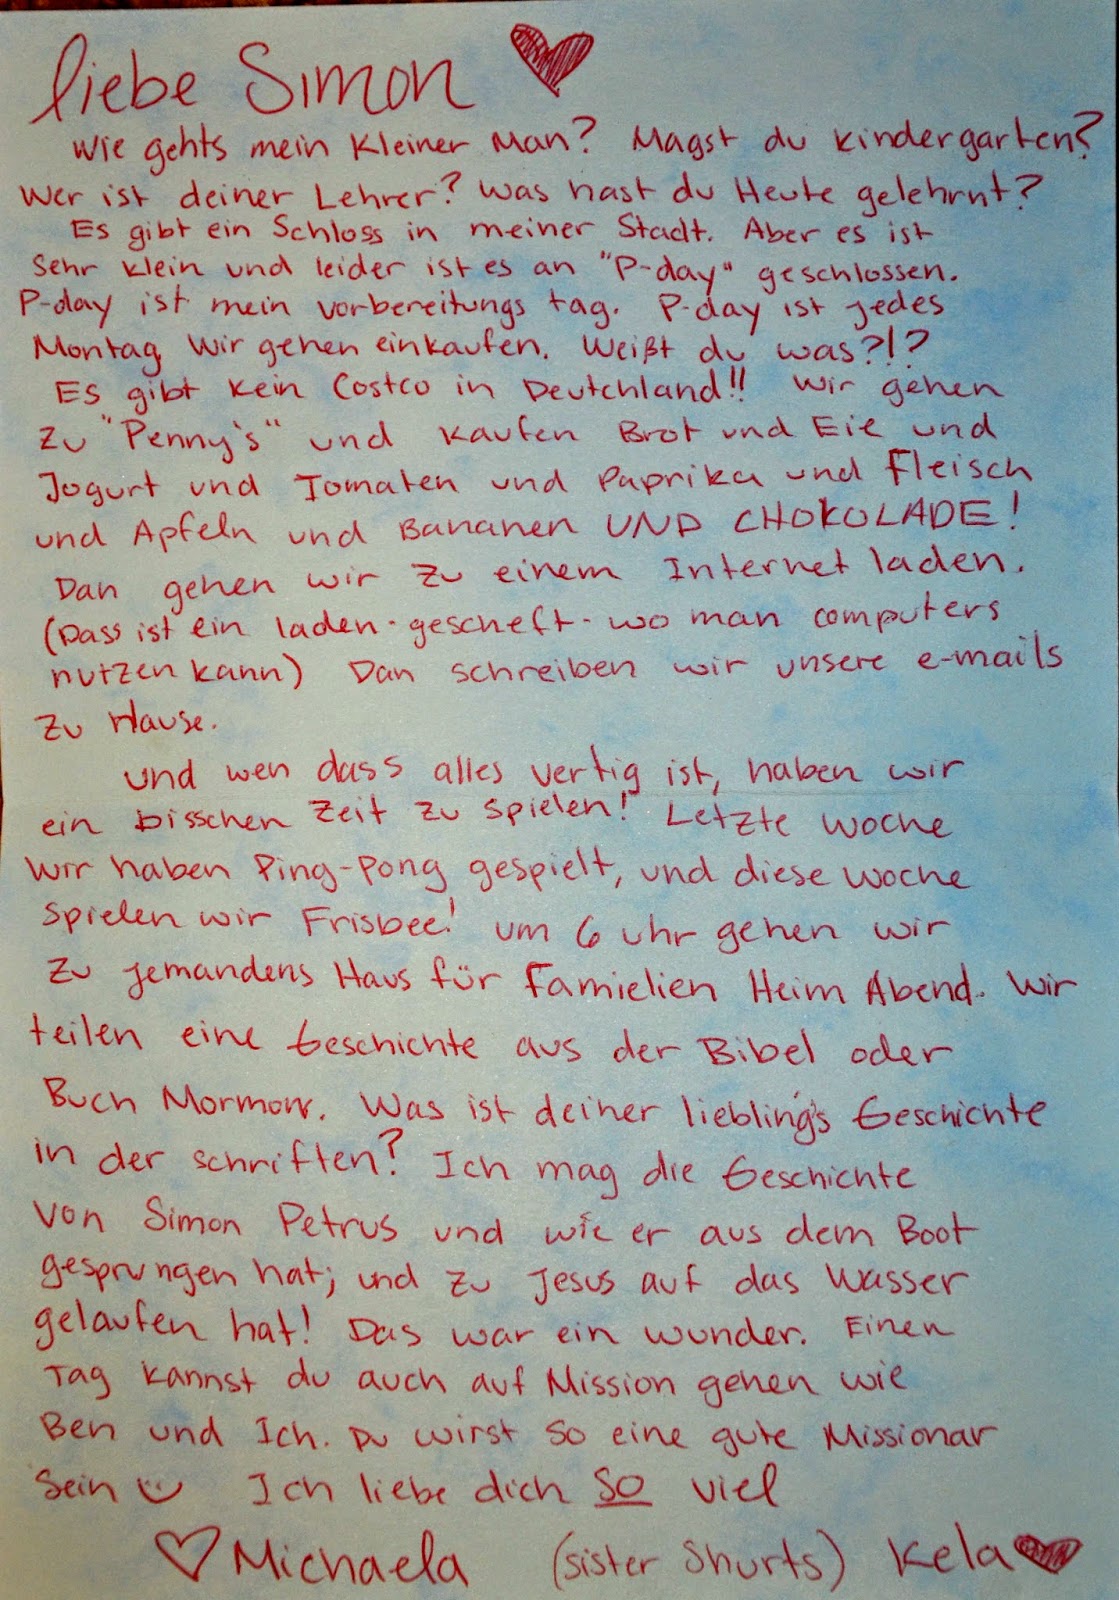 liebe Simon
Wie gehts mein kleiner Man? Magst du kindergarten?
Wer ist deiner Lehrer? Was hast du Heute gelehrnt?
Es gibt ein Schloss in meiner Stadt. Aber es ist
Sehr klein und leider ist es an "P-day" geschlossen.
P-day ist mein vorbereitungs tag. P-day ist jedes
Montag. Wir gehen einkaufen. Weißt du was?!?
Es gibt kein Costco in Deutchland!! Wir gehen
zu "Penny's" und kaufen Brot und Eie und
Jogurt und Tomaten und Paprika und Fleisch
und Apfeln und Bananen UND CHOKOLADE!
Dan gehen wir zu einem Internet laden.
(Dass ist ein laden-gescheft-wo man computers
nutzen kann) Dan schreiben wir unsere e-mails
zu Hause.
Und wen dass alles vertig ist, haben wir
ein bisschen Zeit zu spielen! Letzte Woche
wir haben Ping-Pong gespielt, und diese Woche
spielen wir Frisbee! um 6 uhr gehen wir
zu jemandens Haus für Famielien Heim Abend. Wir
teilen eine Geschichte aus der Bibel oder
Buch Mormon. Was ist deiner liebling's Geschichte
in der schriften? Ich mag die Geschichte
von Simon Petrus und wie er aus dem Boot
gesprungen hat; und zu Jesus auf das Wasser
gelaufen hat! Das war ein wunder. Einen
Tag kannst du auch auf Mission gehen wie
Ben und Ich. Du wirst so eine gute Missionar
Sein Ich liebe dich SO viel
Michaela (sister Shurts) Kela